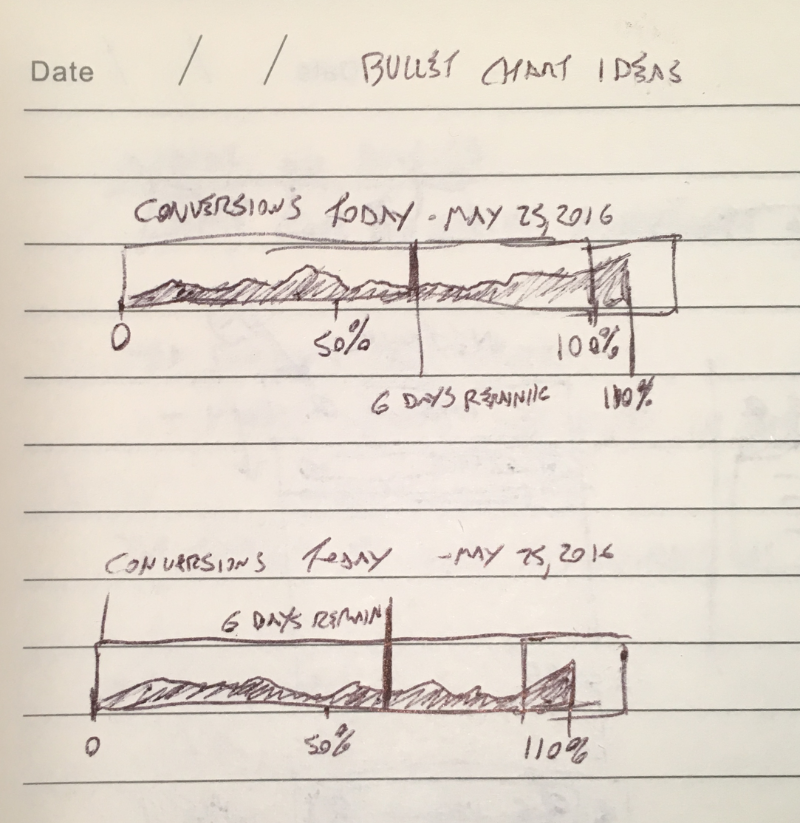 Date / / BULLET CHART IDEAS
CONVERSIONS TODAY - MAY 25, 2016
0 50% 100%
6 DAYS REMAINING 110%
CONVERSIONS TODAY - MAY 25, 2016
6 DAYS REMAIN
0 50% 110%